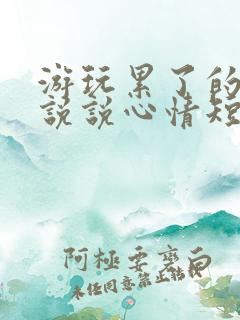 游玩累了的
说说心情短
阿极要变白
未经同意禁止转载